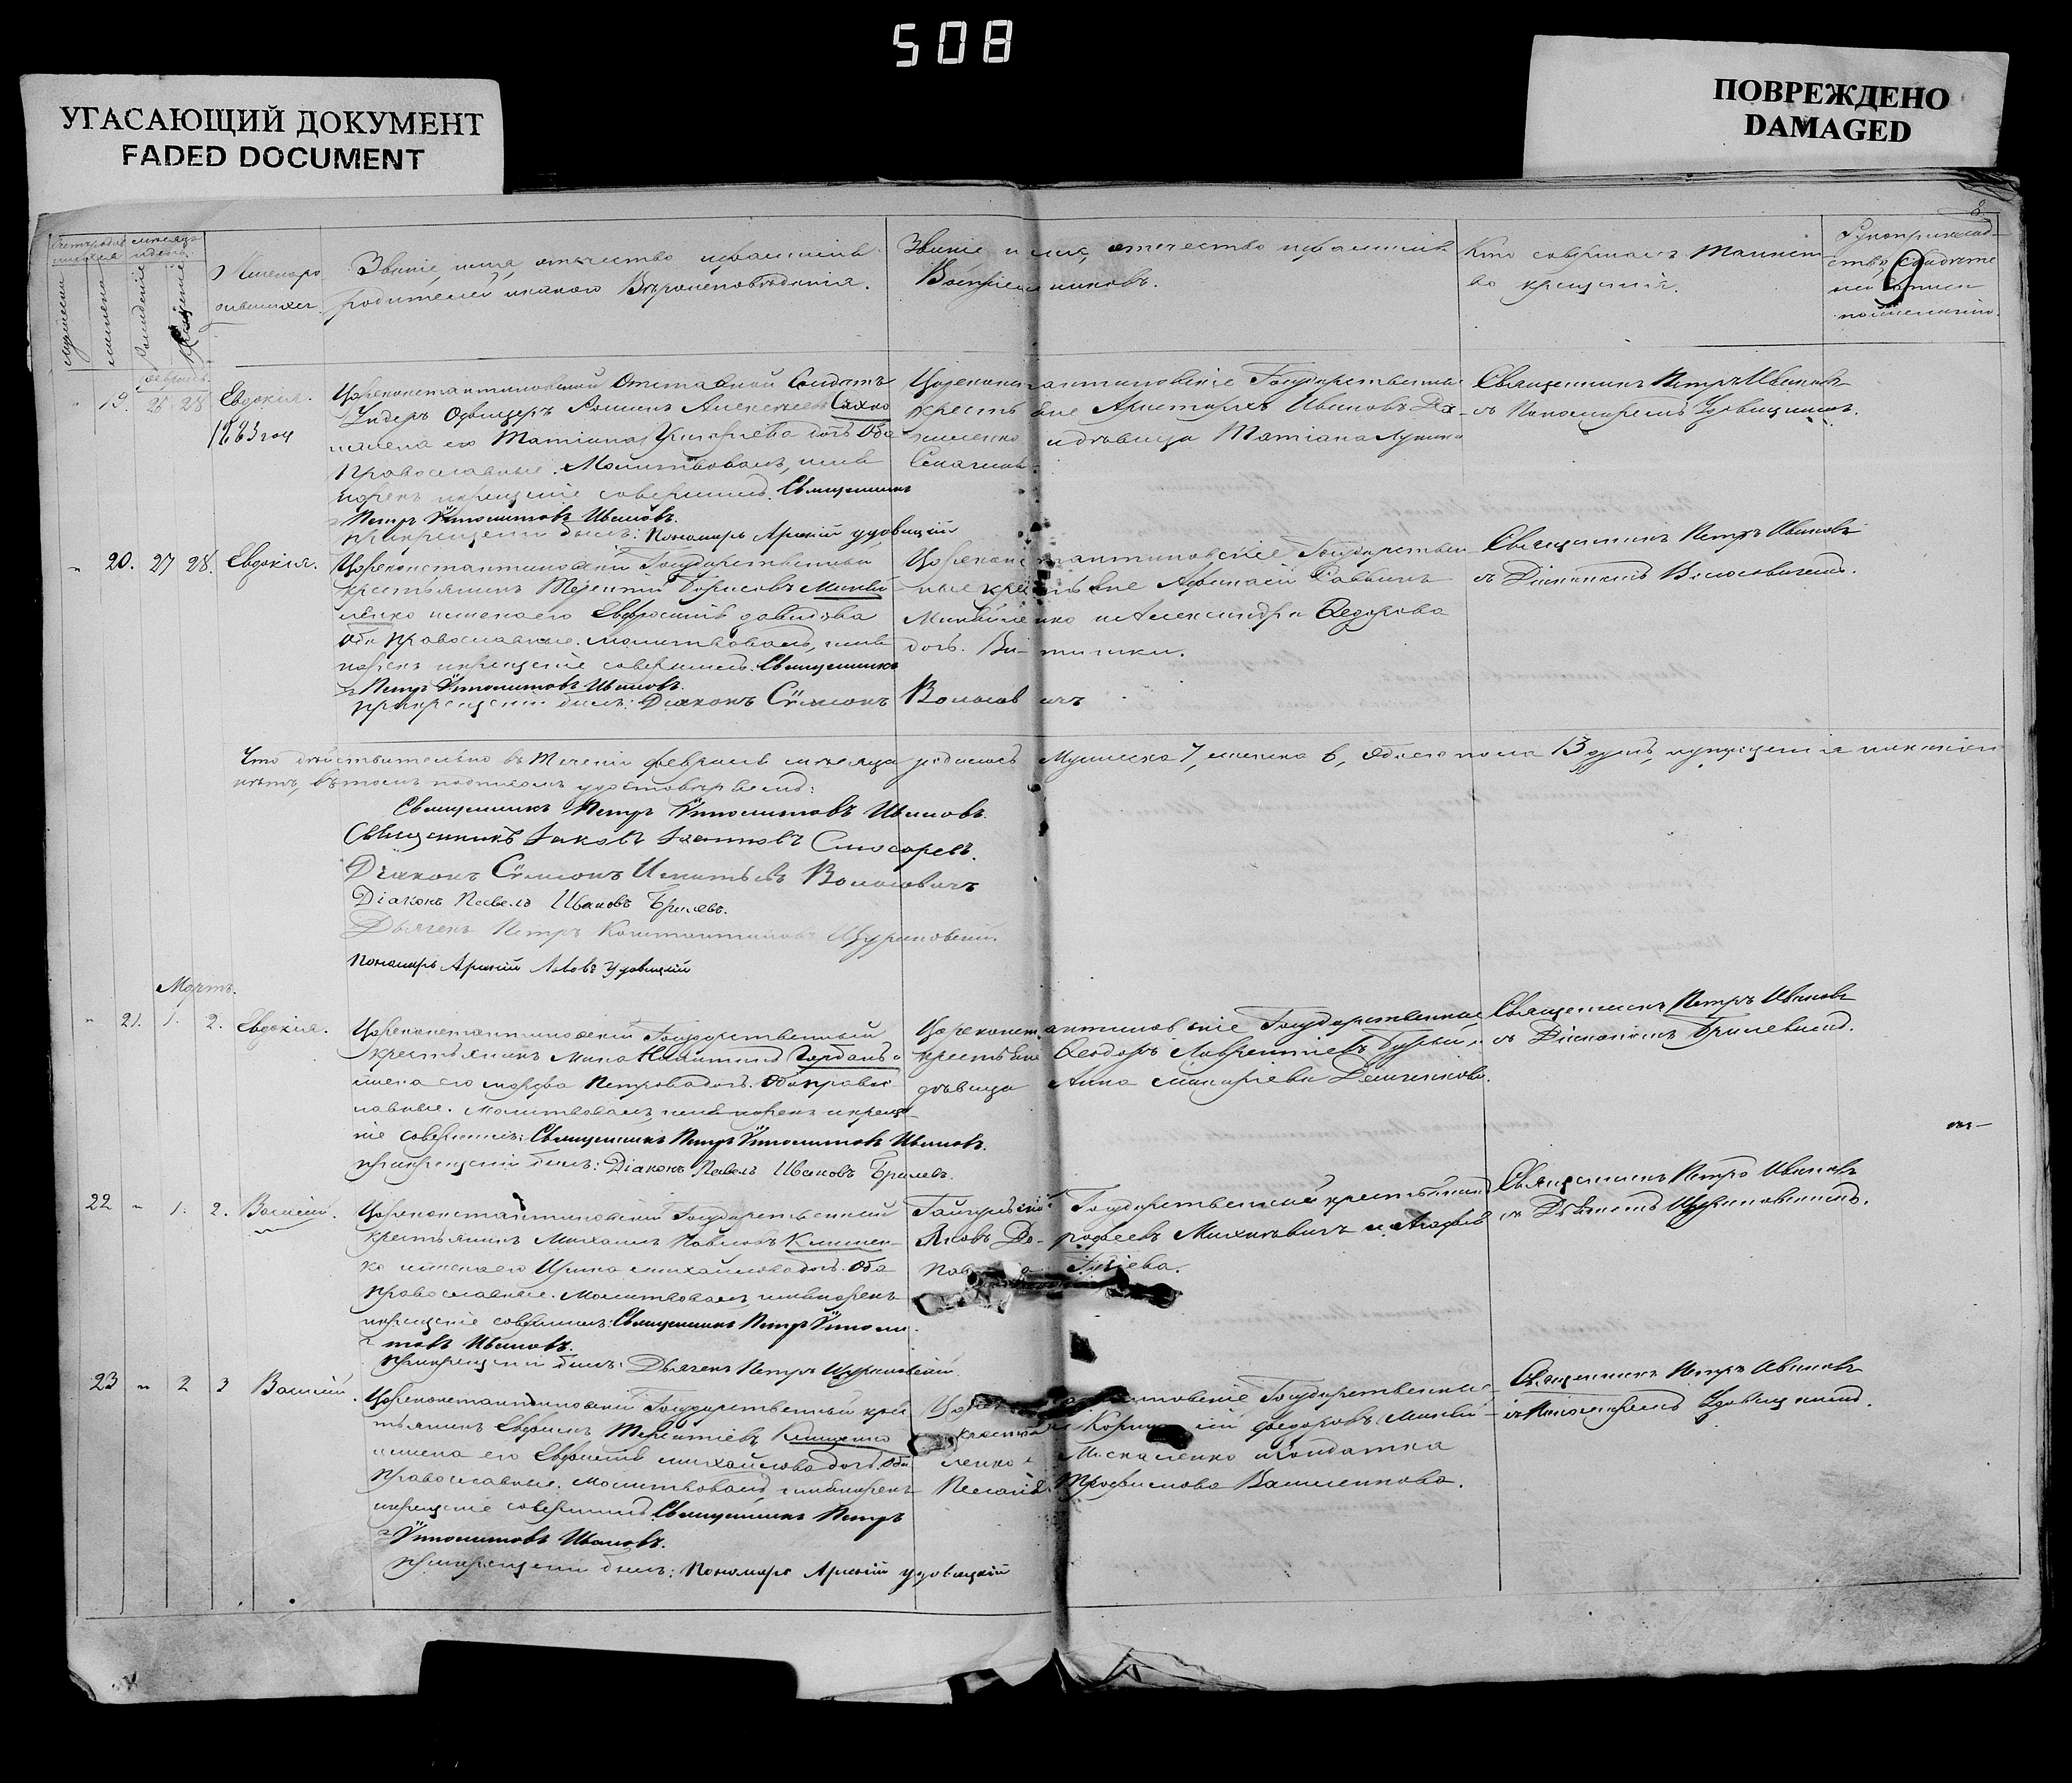 508
УГАСАЮЩИЙ ДОКУМЕНТ
FADED DOCUMENT
ПОВРЕЖДЕНО
DAMAGED
8
9
Счетъ родив
шихся
мѣсяцъ
и день.
мужеска
женска
Рожденіе
Крещеніе
Имена ро
дившихся.
Званіе, имя, отчество и фамилія
родителей и какого Вѣроисповѣданія.
Званіе имя, отчество и фамилія
Воспріемниковъ.
Кто совершалъ Таинст
во крещенія.
Рукоприклад-
ство свидѣте
лей записи
по желанію.
Февраль.
19. 25. 28 Евдокія.
1863 год
Цареконстантиновскій Отставной Солдатъ
Ундеръ Офицеръ Алексѣевъ Сахно
жена его Татіана Григоріева доч. Оба
Православные. Молитвовалъ, имя
нарекъ и крещеніе совершилъ Священникъ
Петръ Ѵпполитовъ Ивановъ.
При крещеніи былъ: Пономарь Арсеній Удовицкій
Цареконстантиновскіе Государственные
крестьяне Аристархъ Ивановъ
и дѣвица Татіана
Священникъ Петръ Ивановъ
съ Пономаремъ Удовицкимъ.
20. 27 28. Евдокія.
Цареконстантиновскій Государственный
крестьянинъ Терентій Борисовъ Миняй
ленко и жена его Евфросинія Давидова
Оба Православные. Молитвовалъ, имя
нарекъ и крещеніе совершилъ. Священникъ
Петръ Ѵпполитовъ Ивановъ.
При крещеніи былъ: Діаконъ Сѵмеонъ Волосовичъ
Цареконстантиновскіе Государствен
ные крестьяне Афанасій Саввинъ
Миняйленко и Александра Ѳедорова
доч.
Священникъ Петръ Ивановъ
съ Діакономъ Волосовичемъ.
Что дѣйствительно въ Теченіи февраля мѣсяца родилось Мужеска 7, женска 6, обоего пола 13 душъ, и упущенія никакого
нѣтъ, въ томъ подписомъ удостовѣряемъ:
Священникъ Петръ Ѵпполитовъ Ивановъ.
Священникъ Іаковъ Іоанновъ Слюсаревъ.
Діаконъ Сѵмеонъ Игнатьевъ Волосовичъ
Діаконъ Павелъ Ивановъ Брилевъ.
Дьячекъ Петръ Константиновъ Щуриновскій.
Пономарь Арсеній Львовъ Удовицкій
Мартъ.
21. 1. 2. Евдокія.
Цареконстантиновскій Государственный
крестьянинъ Никитинъ
жена его Марфа Петрова доч. Оба правос
лавные. Молитвовалъ, имя нарекъ и креще
ніе совершилъ: Священникъ Петръ Ѵпполитовъ Ивановъ.
При крещеніи былъ: Діаконъ Павелъ Ивановъ Брилевъ.
Цареконстантиновскіе Государственные
крестьяне Ѳеодоръ Лаврентіевъ
дѣвица Анна Макаріева Демченкова.
Священникъ Петръ Ивановъ
съ Діакономъ Брилевымъ.
22 " 1. 2. Василій.
Цареконстантиновскій Государственный
крестьянинъ Михаилъ Павловъ Клишен-
ко и жена его Ирина Михайлова доч. Оба
Православные. Молитвовалъ, имя нарекъ
и крещеніе совершилъ: Священникъ Петръ Ѵпполи
товъ Ивановъ.
При крещеніи былъ: Дьячекъ Петръ Щуриновскій.
Гайчурскіе Государственный крестьянинъ
Яковъ Дорофеевъ Михневичъ и Агафія
Священникъ Петръ Ивановъ
съ Дьячкомъ Щуриновскимъ.
23 " 2 3 Василій.
Цареконстантиновскій Государственный крес
тьянинъ Евфимъ Терентіевъ Клищенко
и жена его Евфимія Михайлова доч. Оба
Православные. Молитвовалъ, имя нарекъ
и крещеніе совершилъ Священникъ Петръ
Ѵпполитовъ Ивановъ.
При крещеніи былъ: Пономарь Арсеній Удовицкій
Государственные
Ѳедоровъ Миняй
ленко и солдатка
Пелагія Трофимова Василенкова.
Священникъ Петръ Ивановъ
съ Пономаремъ Удовицкимъ.